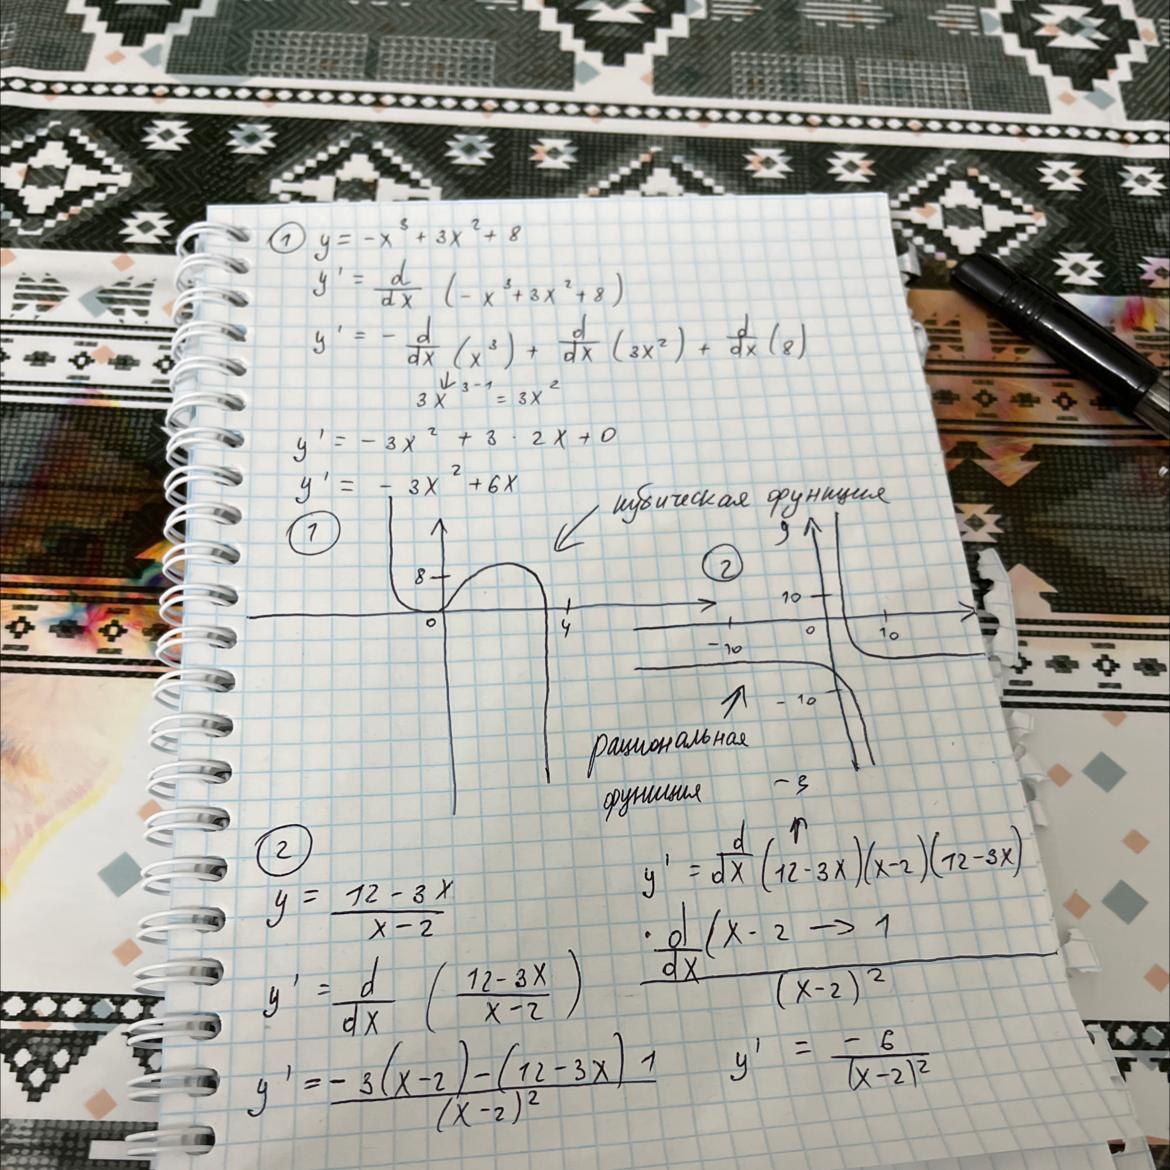 ① y = -x³ + 3x² + 8
y' = d/dx (-x³ + 3x² + 8)
y' = - d/dx (x³) + d/dx (3x²) + d/dx (8)
↓
3x³⁻¹ = 3x²
y' = -3x² + 3 · 2x + 0
y' = -3x² + 6x
кубическая функция
①
8
0
4
②
y
10
-10
0
10
-10
рациональная
функция
-3
②
y = 12-3x / x-2
y' = d/dx (12-3x / x-2)
y' = -3(x-2)-(12-3x) 1 / (x-2)²
y' = d/dx (12-3x)(x-2)(12-3x)
· d/dx (x-2 → 1
(x-2)²
y' = -6 / (x-2)²